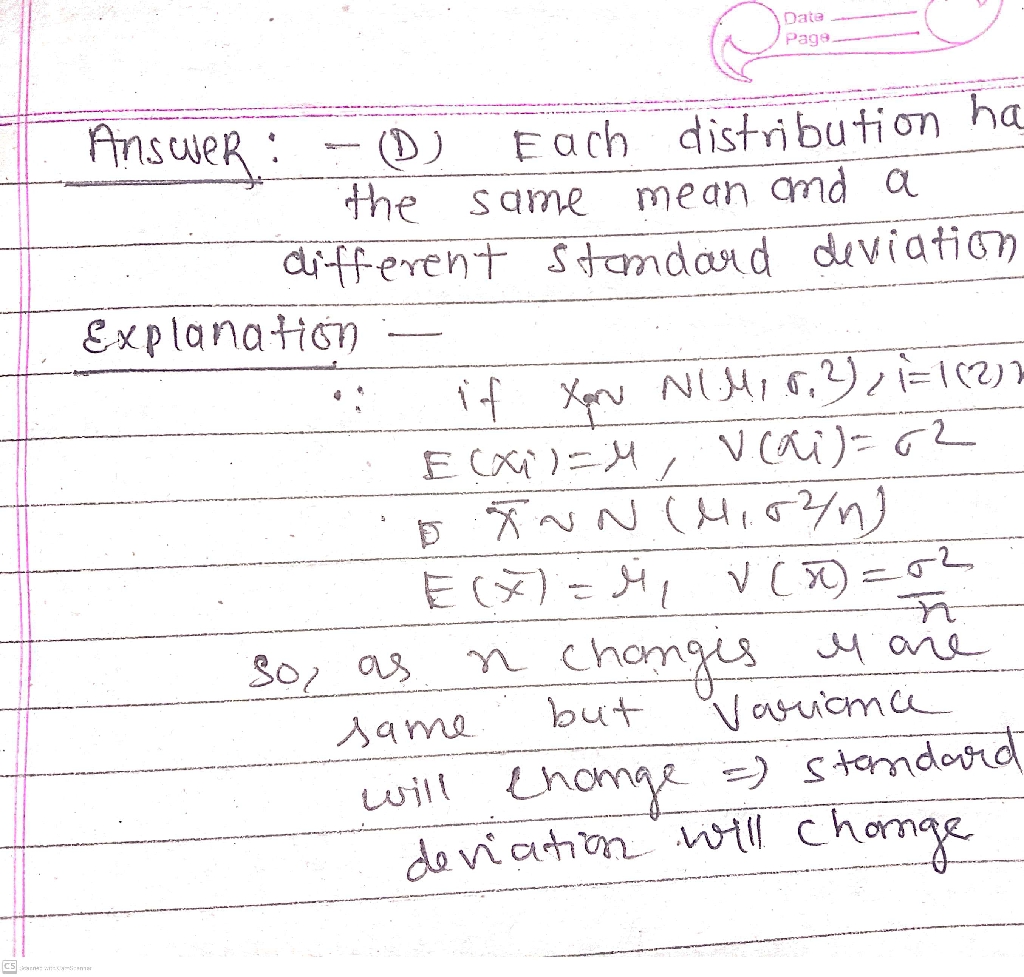 Date
Page
Answer : - (D) Each distribution ha
the same mean and a
different standard deviation
Explanation —
∵ if N(μ, σ,2), i=1(2)n
E(xi)=μ, V(xi)=σ2
x̄ ~ N (μ, σ2/n)
E(x̄) = μ, V(x̄) = σ2/n
So, as n changes μ are
same but Variance
will change => standard
deviation will change
CS Scanned with CamScanner